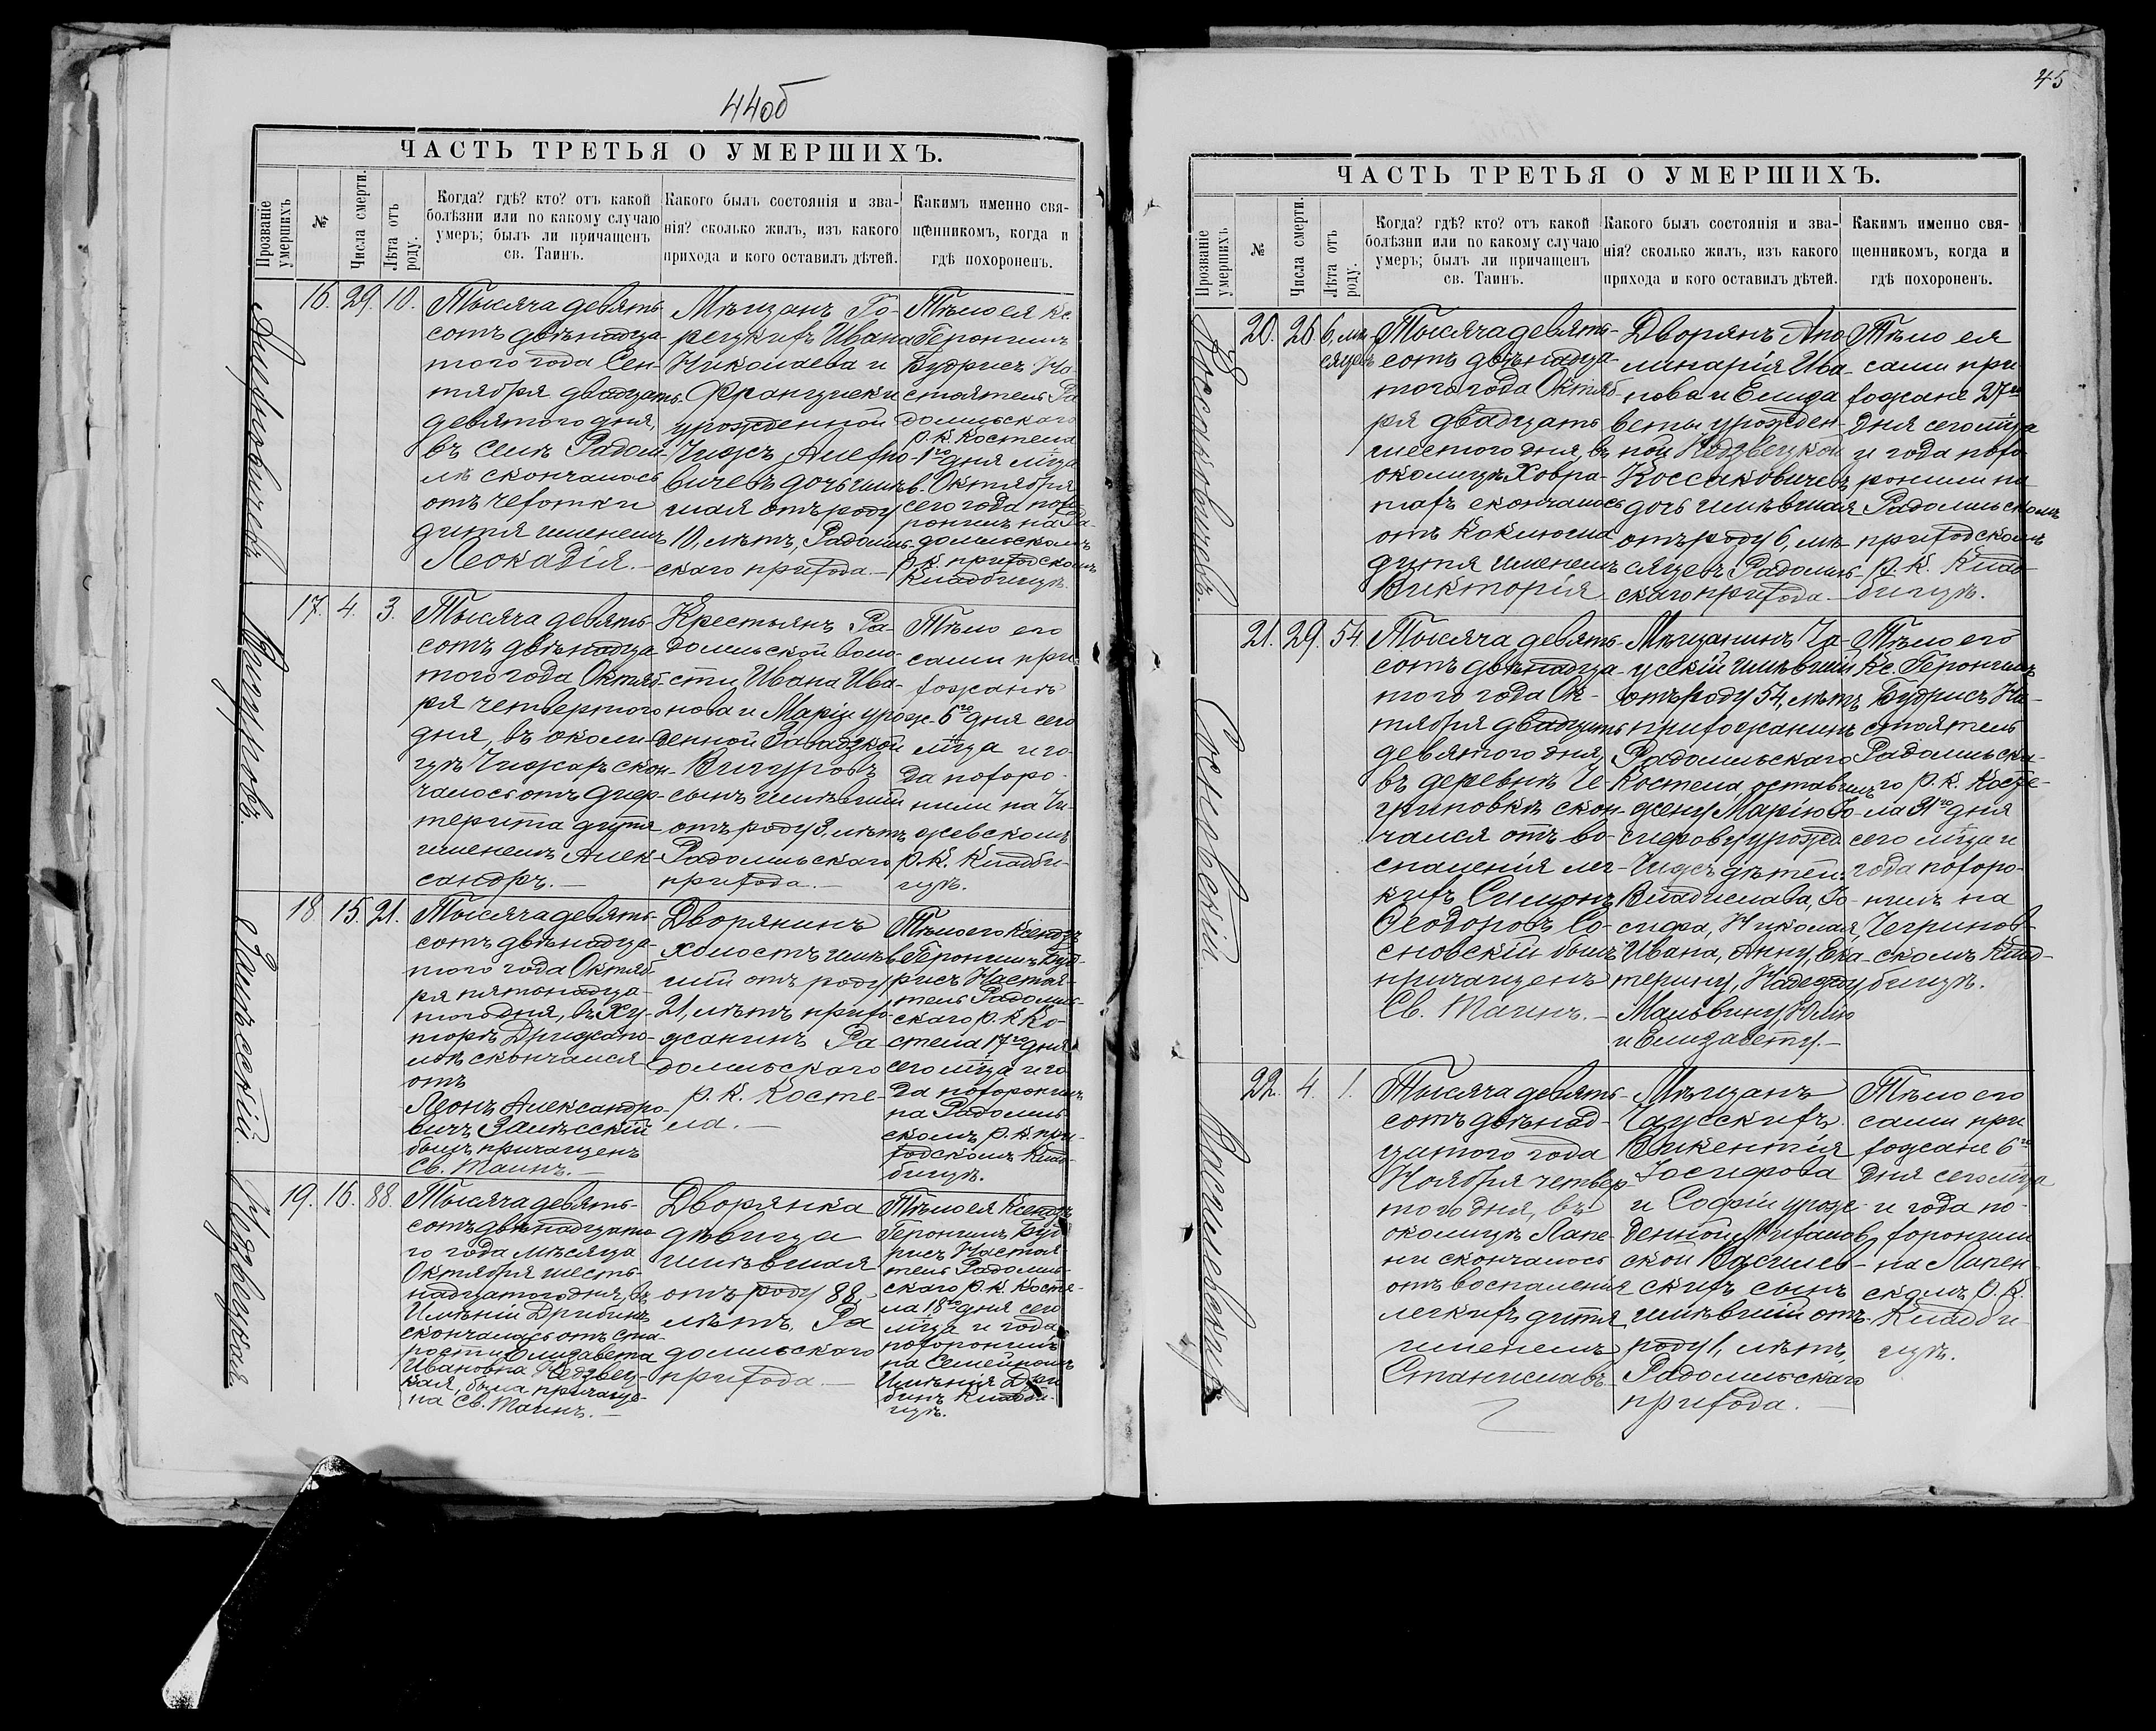 44об
ЧАСТЬ ТРЕТЬЯ О УМЕРШИХЪ.
Прозваніе умершихъ
№
Числа смерти.
Лѣта отъ роду.
Когда? гдѣ? кто? отъ какой
болѣзни или по какому случаю
умеръ; былъ ли причащенъ
св. Таинъ.
Какого былъ состоянія и зва-
нія? сколько жилъ, изъ какого
прихода и кого оставилъ дѣтей.
Какимъ именно свя-
щенникомъ, когда и
гдѣ похороненъ.
16. 29. 10.
Тысяча девять-
сотъ двѣнадца-
того года Сен-
тября двадцать
девятого дня,
въ селѣ Радом-
лѣ скончалось
отъ чехотки
дитя именемъ
Леокадія.—
Мѣщанъ Го-
рецкихъ Ивана
Николаева и
Францишки
урожденной
Чижъ Алехно-
вичевъ дочь имѣв-
шая отъ роду
10, лѣтъ, Радомль-
скаго прихода.—
Тѣло ея Кс.
Геронимъ
Будрисъ На-
стоятель Ра
домльскаго
р. к. костела
1го дня м-ца
Октября
сего года похо
ронилъ на Ра-
домльскомъ
р. к. приходскомъ
Кладбищѣ.
17. 4. 3.
Тысяча девять-
сотъ двѣнадца-
того года Октяб-
ря четвертого
дня, въ околи-
цѣ Чижахъ скон-
чалось отъ диф-
терита дитя
именемъ Алек-
сандръ.—
Крестьянъ Ра-
домльской воло-
сти Ивана Ива-
нова и Маріи урож-
денной Завадзкой
сынъ имѣвшій
отъ роду 3, лѣтъ
Радомльскаго
прихода.—
Тѣло его
сами при-
хожане
6го дня сего
м-ца и го-
да похоро-
нили на Чи-
жевскомъ
р. к. Кладби-
щѣ.
18. 15. 21.
Тысяча девять-
сотъ двѣнадца-
того года Октяб-
ря пятонадца-
того дня, въ Ху-
торѣ
скончался
отъ
Леонъ Александро-
вичъ Залѣсскій
былъ причащенъ
Св. Таинъ.—
Дворянинъ
холостъ имѣв-
шій отъ роду
21, лѣтъ прихо-
жанинъ Ра
домльскаго
р. к. Косте-
ла.—
Тѣло его Ксендзъ
Геронимъ Буд-
рисъ Настоя-
тель Радомль-
скаго р. к. Ко-
стела 17го дня
сего м-ца и го
да похоронилъ
на Радомль-
скомъ р. к. при-
ходскомъ Клад-
бищѣ.
Залѣсскій.
19. 16. 88.
Тысяча девять-
сотъ двѣнадцата-
го года мѣсяца
Октября шесть-
надцатого дня, въ
Имѣніи Дрибинъ
скончалась отъ ста-
рости Елизавета
Ивановна Недзвец-
кая, была причаще-
на Св. Таинъ.—
Дворянка
дѣвица
имѣвшая
отъ роду 88
лѣтъ, Ра
домльскаго
прихода.—
Тѣло ея Ксендзъ
Геронимъ Буд
рисъ Настоя-
тель Радомль-
скаго р. к. Косте-
ла 18го дня сего
м-ца и года
похоронилъ
на Семейномъ
Имѣнія Дри
бинъ Кладби-
щѣ.
Недзвецкая.
45
ЧАСТЬ ТРЕТЬЯ О УМЕРШИХЪ.
Прозваніе умершихъ
№
Числа смерти.
Лѣта отъ роду.
Когда? гдѣ? кто? отъ какой
болѣзни или по какому случаю
умеръ; былъ ли причащенъ
св. Таинъ.
Какого былъ состоянія и зва-
нія? сколько жилъ, изъ какого
прихода и кого оставилъ дѣтей.
Какимъ именно свя-
щенникомъ, когда и
гдѣ похороненъ.
Коссаковичевъ.
20. 26. 6, мѣ-
сяцевъ
Тысяча девять-
сотъ двѣнадца-
того года Октяб-
ря двадцать
шестого дня, въ
околицѣ
скончалось
отъ коклюша
дитя именемъ
Викторія
Дворянъ Апо
линарія Ива-
нова и Елиза
веты урожден-
ной Недзвецкой
Коссаковичевъ
дочь имѣвшая
отъ роду 6, мѣ-
сяцевъ Радомль-
скаго прихода.—
Тѣло ея
сами при
хожане 27го
дня сего м-ца
и года похо-
ронили на
Радомльскомъ
приходскомъ
р. к. Клад-
бищѣ.
Сосновскій.
21. 29. 54.
Тысяча девять-
сотъ двѣнадца-
того года Ок-
тября двадцать
девятого дня,
въ деревнѣ Че-
гриновкѣ скон-
чался отъ во-
спаленія лег-
кихъ Симонъ
Феодоровъ Со-
сновскій былъ
причащенъ
Св. Таинъ.—
Мѣщанинъ Ча-
усскій имѣвшій
отъ роду 54, лѣтъ
прихожанинъ
Радомльскаго
Костела, оставилъ
жену Марію Іо-
сифову урожд.
Чижъ дѣтей:
Владислава, Іо-
сифа, Николая,
Ивана, Анну, Ека-
терину, Надежду,
Мальвину, Юлію
и Елизавету.—
Тѣло его
Кс. Геронимъ
Будрисъ На-
стоятель
Радомльска-
го р. к. Косте-
ла 31го дня
сего м-ца и
года похоро-
нилъ на
Чегринов-
скомъ Клад-
бищѣ.
Васильевскихъ
22. 4. 1.
Тысяча девять-
сотъ двѣнад-
цатого года
Ноября четвер-
того дня, въ
околицѣ Лапе-
ни скончалось
отъ воспаленія
легкихъ дитя
именемъ
Станиславъ
Мѣщанъ
Чаусскихъ
Викентія
Іосифова
и Софіи урож-
денной
ской Василев-
скихъ сынъ
имѣвшій отъ
роду 1, лѣтъ,
Радомльскаго
прихода.—
Тѣло его
сами при
хожане 6го
дня сего м-ца
и года по-
хоронили
на Лапен-
скомъ р. к.
Кладби-
щѣ.